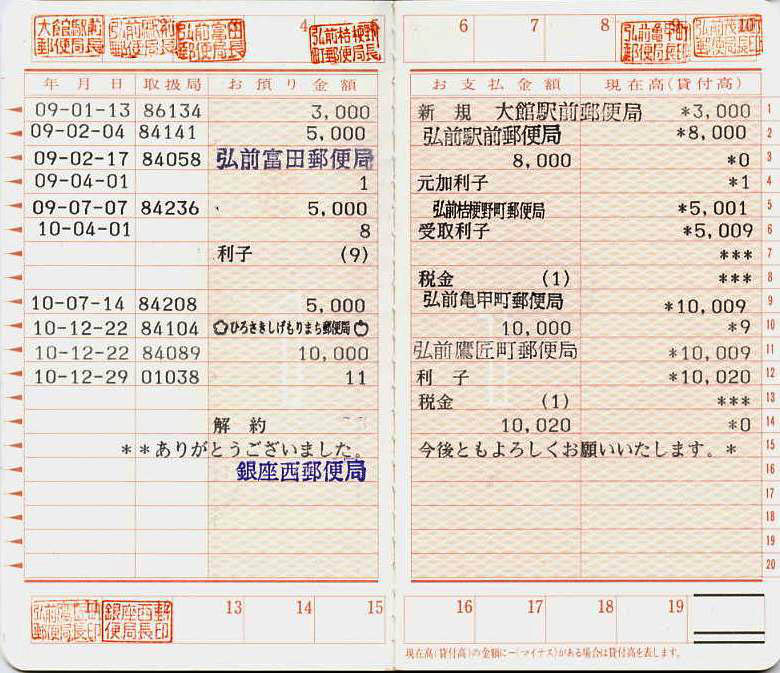 大館駅前郵便局長
弘前駅前郵便局長
弘前富田郵便局長
4
弘前桔梗野町郵便局長
5
6
7
8
弘前亀甲町郵便局長
9
10
年月日 取扱局 お預り金額 お支払金額 現在高(貸付高)
09-01-13 86134 3,000 新規 大館駅前郵便局 *3,000 1
09-02-04 84141 5,000 弘前駅前郵便局 *8,000 2
09-02-17 84058 弘前富田郵便局 8,000 *0 3
09-04-01 1 元加利子 *1 4
09-07-07 84236 5,000 弘前桔梗野町郵便局 *5,001 5
10-04-01 8 受取利子 *5,009 6
利子 (9) *** 7
税金 (1) *** 8
10-07-14 84208 5,000 弘前亀甲町郵便局 *10,009 9
10-12-22 84104 ひろさきしげもりまち郵便局 10,000 *9 10
10-12-22 84089 10,000 弘前鷹匠町郵便局 *10,009 11
10-12-29 01038 11 利子 *10,020 12
税金 (1) *** 13
解約 10,020 *0 14
**ありがとうございました。 今後ともよろしくお願いいたします。* 15
銀座西郵便局 16
17
18
19
20
11
銀座西郵便局長印
13
14
15
16
17
18
19
現在高(貸付高)の金額に−(マイナス)がある場合は貸付高を表します。